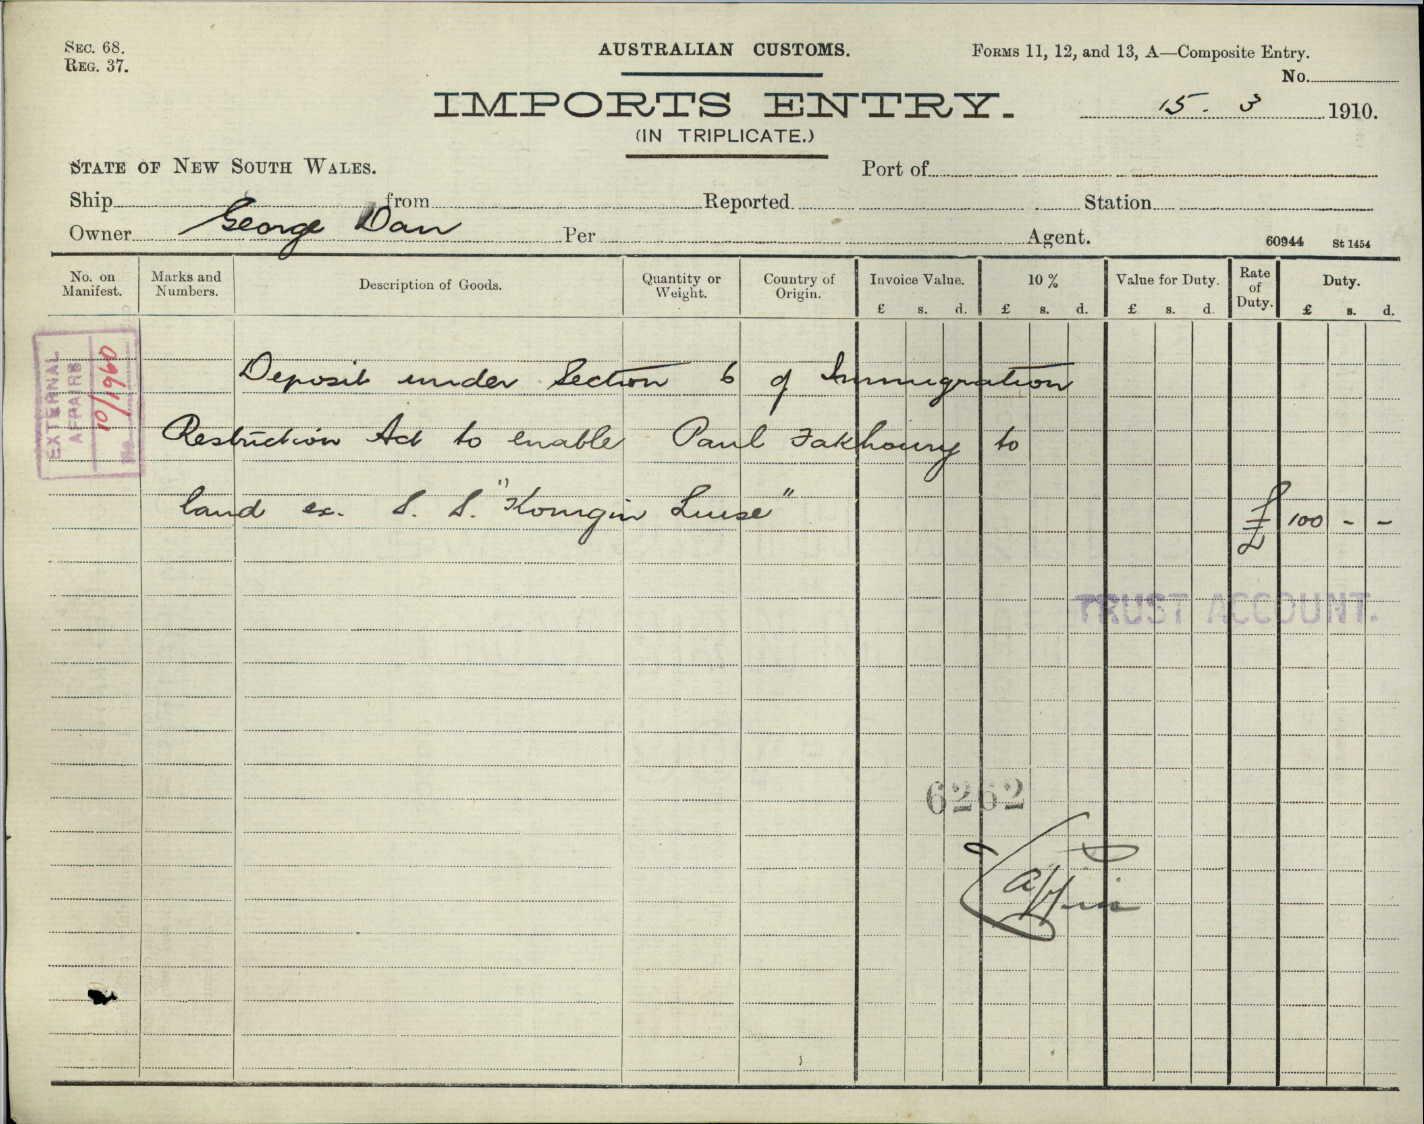 SEC. 68.
REG. 37.
AUSTRALIAN CUSTOMS.
FORMS 11, 12, and 13, A—Composite Entry.
No.
IMPORTS ENTRY.
15. 3 1910.
(IN TRIPLICATE.)
STATE OF NEW SOUTH WALES.
Port of
Ship from Reported Station
Owner George Dan Per Agent.
60944 St 1454
No. on Manifest.
Marks and Numbers.
Description of Goods.
Quantity or Weight.
Country of Origin.
Invoice Value.
10 %
Value for Duty.
Rate of Duty.
Duty.
£ s. d. £ s. d. £ s. d. £ s. d.
EXTERNAL
AFFAIRS
No 10/1960
Deposit under Section 6 of Immigration
Restriction Act to enable Paul Fakhoury to
land ex. S. S. "Konigin Luise" £ 100 - -
TRUST ACCOUNT.
6262